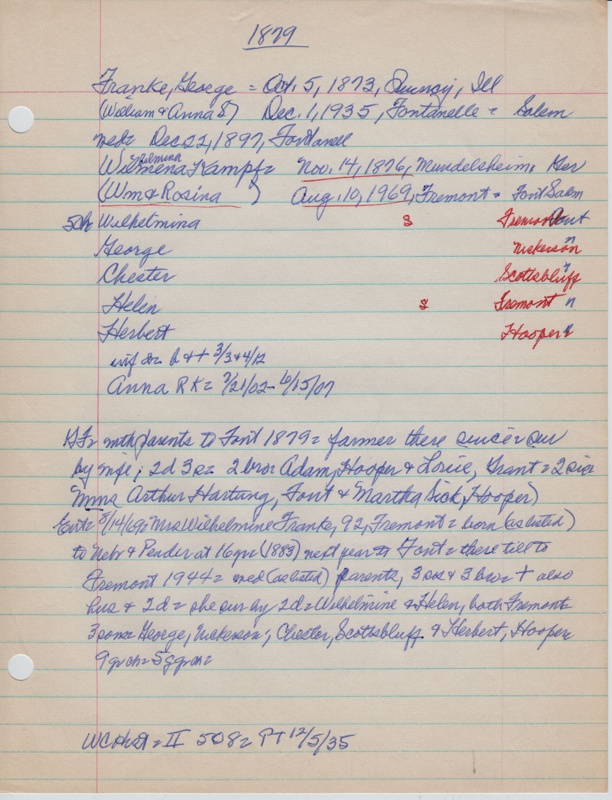 1879
Franke, George = Oct. 5, 1873, Quincy, Ill
(William & Anna S) Dec. 1, 1935, Fontanelle = Salem
med= Dec 22, 1897, Fontanell
helmina
Wilmena Kampf= Nov. 14, 1876, Mundelsheim, Ger
(Wm & Rosina ) Aug. 10, 1969, Fremont = Font Salem
5ch Wilhelmina s Fremont
George Nickerson
Chester Scottsbluff
Helen s Fremont n
Herbert Hooper
inf da= b & + 3/3 & 4/12
Anna R K= 3/21/02 - 6/15/07
G Fr mth parents to Font 1879= farmer there since= sur
by wife; 2d 3s= 2 bro= Adam, Hooper & Louie, Grant = 2 sis=
Mmes Arthur Hartung, Font & Martha Sick, Hooper)
8/14/69= Mrs Wilhelmine Franke, 92, Fremont = born (as listed)
to Nebr & Pender at 16 yr (1883) next year to Font = there till to
Fremont 1944 = med (as listed) parents, 3 sis & 3 bro= + also
hus & 2d = she sur by 2d = Wilhelmine & Helen, both Fremont
3 sons= George, Nickerson; Chester, Scottsbluff & Herbert, Hooper
9 grch= 5 ggrch=
II 508= PT 12/5/35